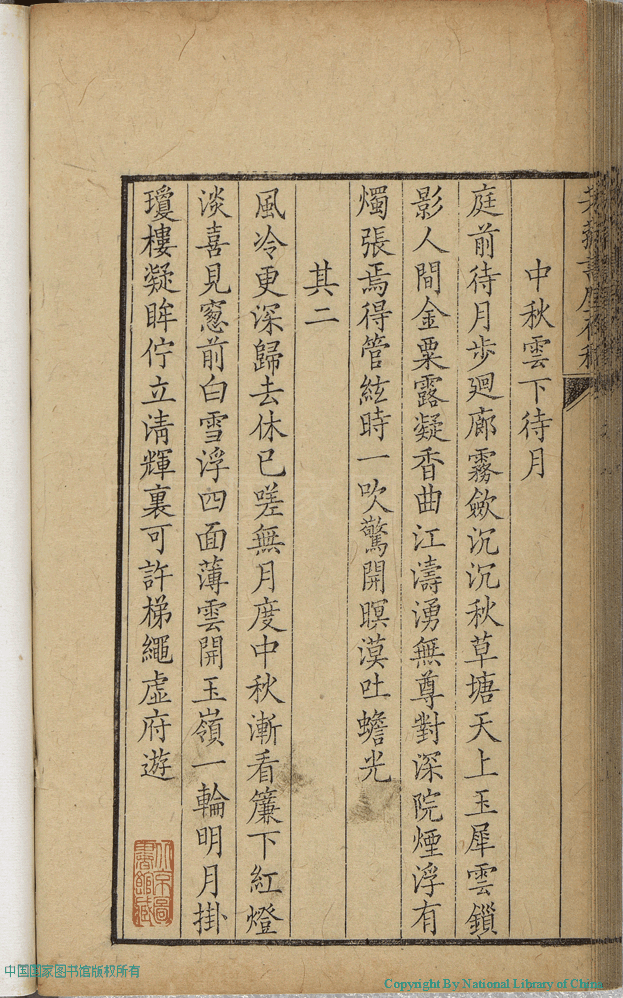 中秋雲下待月
庭前待月步廻廊霧歛沉沉秋草塘天上玉犀雲鎖
影人間金粟露凝香曲江濤湧無尊對深院煙浮有
燭張焉得管絃時一吹驚開暝漠吐蟾光
其二
風冷更深歸去休已嗟無月度中秋漸看簾下紅燈
淡喜見窻前白雪浮四面薄雲開玉嶺一輪明月掛
瓊樓凝眸佇立淸輝裏可許梯繩虛府遊
北京圖
書館藏
中国国家图书馆版权所有
Copyright By National Library of China